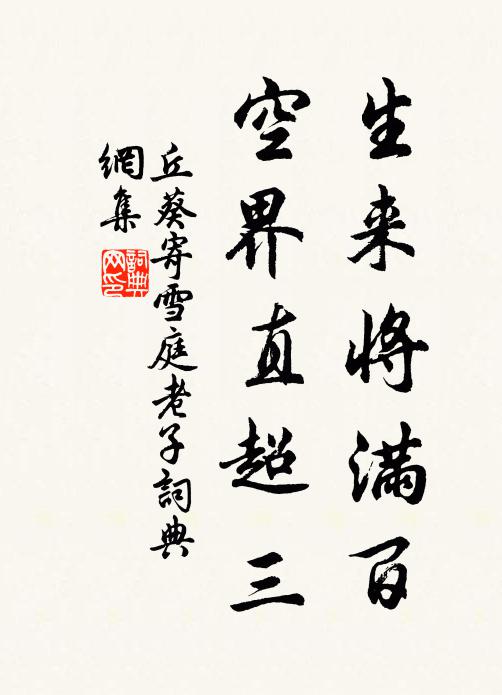 生来将满百
空界直超三
丘葵寄雪庭老子詞典
網集
詞典
网印